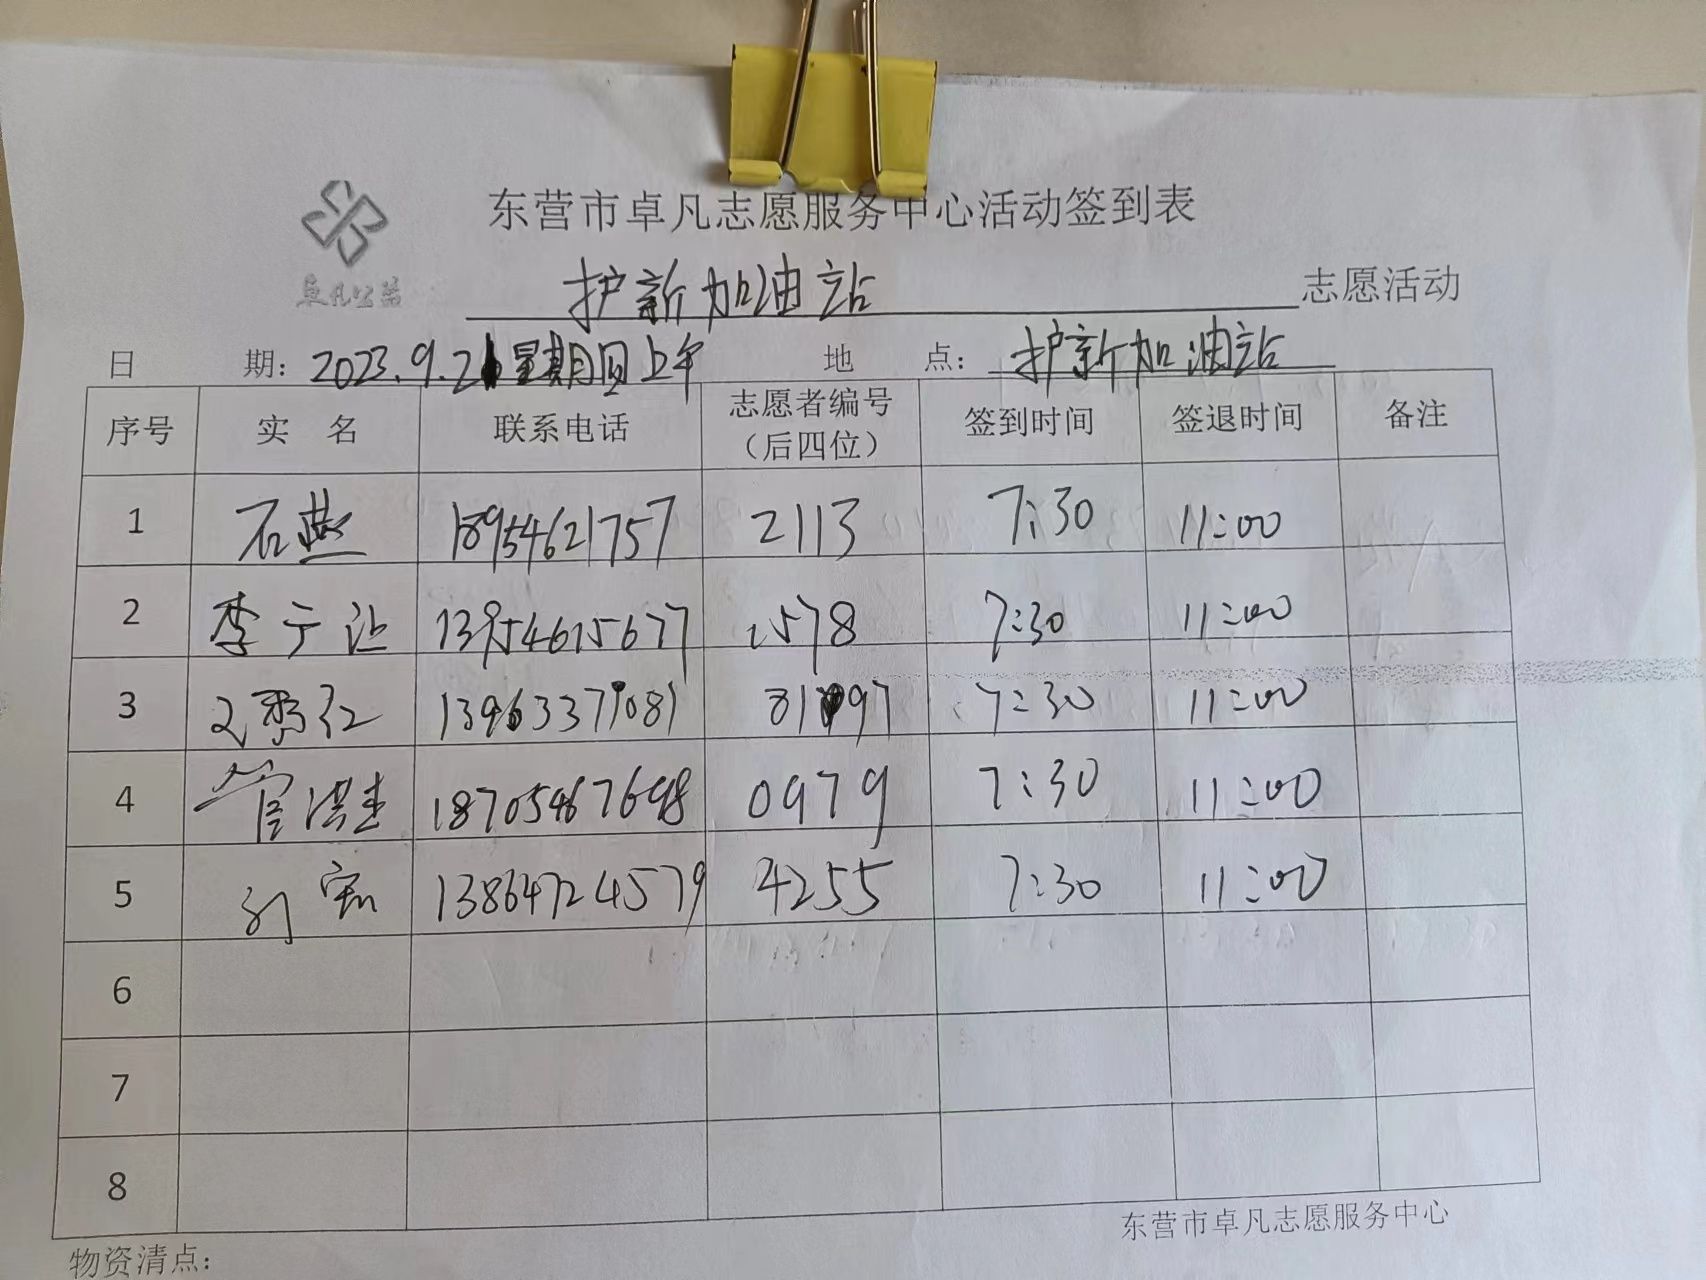 东营市卓凡志愿服务中心活动签到表
卓凡公益
护新加油站 志愿活动
日 期: 2023.9.21 星期四上午 地 点: 护新加油站
序号 实 名 联系电话 志愿者编号（后四位） 签到时间 签退时间 备注
1 石燕 18954621757 2113 7:30 11:00
2 李 13954615677 1578 7:30 11:00
3 7:30 11:00
4 管洪 18705467698 0979 7:30 11:00
5 刘 13864724579 4255 7:30 11:00
6
7
8
东营市卓凡志愿服务中心
物资清点: